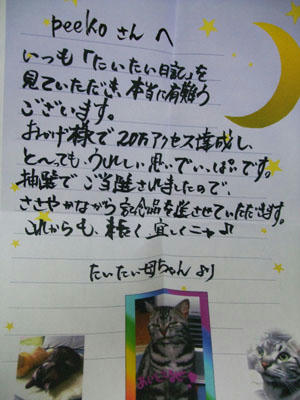 peeko さん へ
いつも「たいたい日記」を
見ていただき、本当に有難う
ございます。
おかげ様で20万アクセス達成し、
と〜っても、ウレしい思いでいっぱいです。
抽選でご当選されましたので、
ささやかながら記念品を送させていただきます。
これからも、末長く宜しくニャ♪
たいたい母ちゃん より